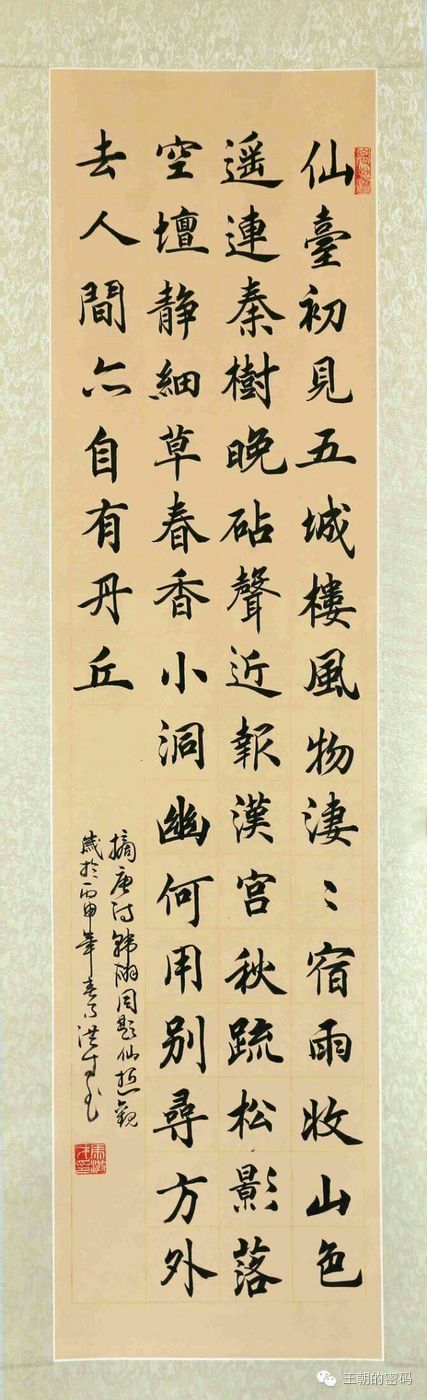 仙臺初見五城樓風物淒〻宿雨收山色
遥連秦樹晚砧聲近報漢宮秋疏松影落
空壇静細草春香小洞幽何用别尋方外
去人間亦自有丹丘
摘唐诗韩翃同題仙遊觀
歲於丙申年春月洪
王朝的密码